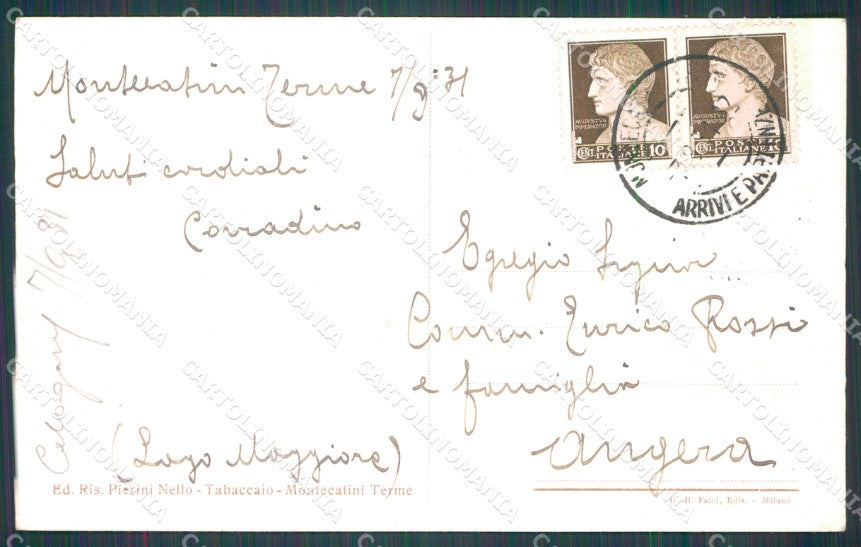 Montecatini Terme 7/9 31
Saluti cordiali
Corradino
AVGVSTVS
IMPERATOR
CENT. POSTE ITALIANE 10
AVGVSTVS
IMPERATOR
CENT. POSTE ITALIANE 10
ARRIVI E PAR
Egregio Signor
Comm. Enrico Rossi
e famiglia
Angera
(Lago Maggiore)
Ed. Ris. Pierini Nello - Tabaccaio - Montecatini Terme
G. B. Falci, Edit. - Milano
CARTOLINOMANIA